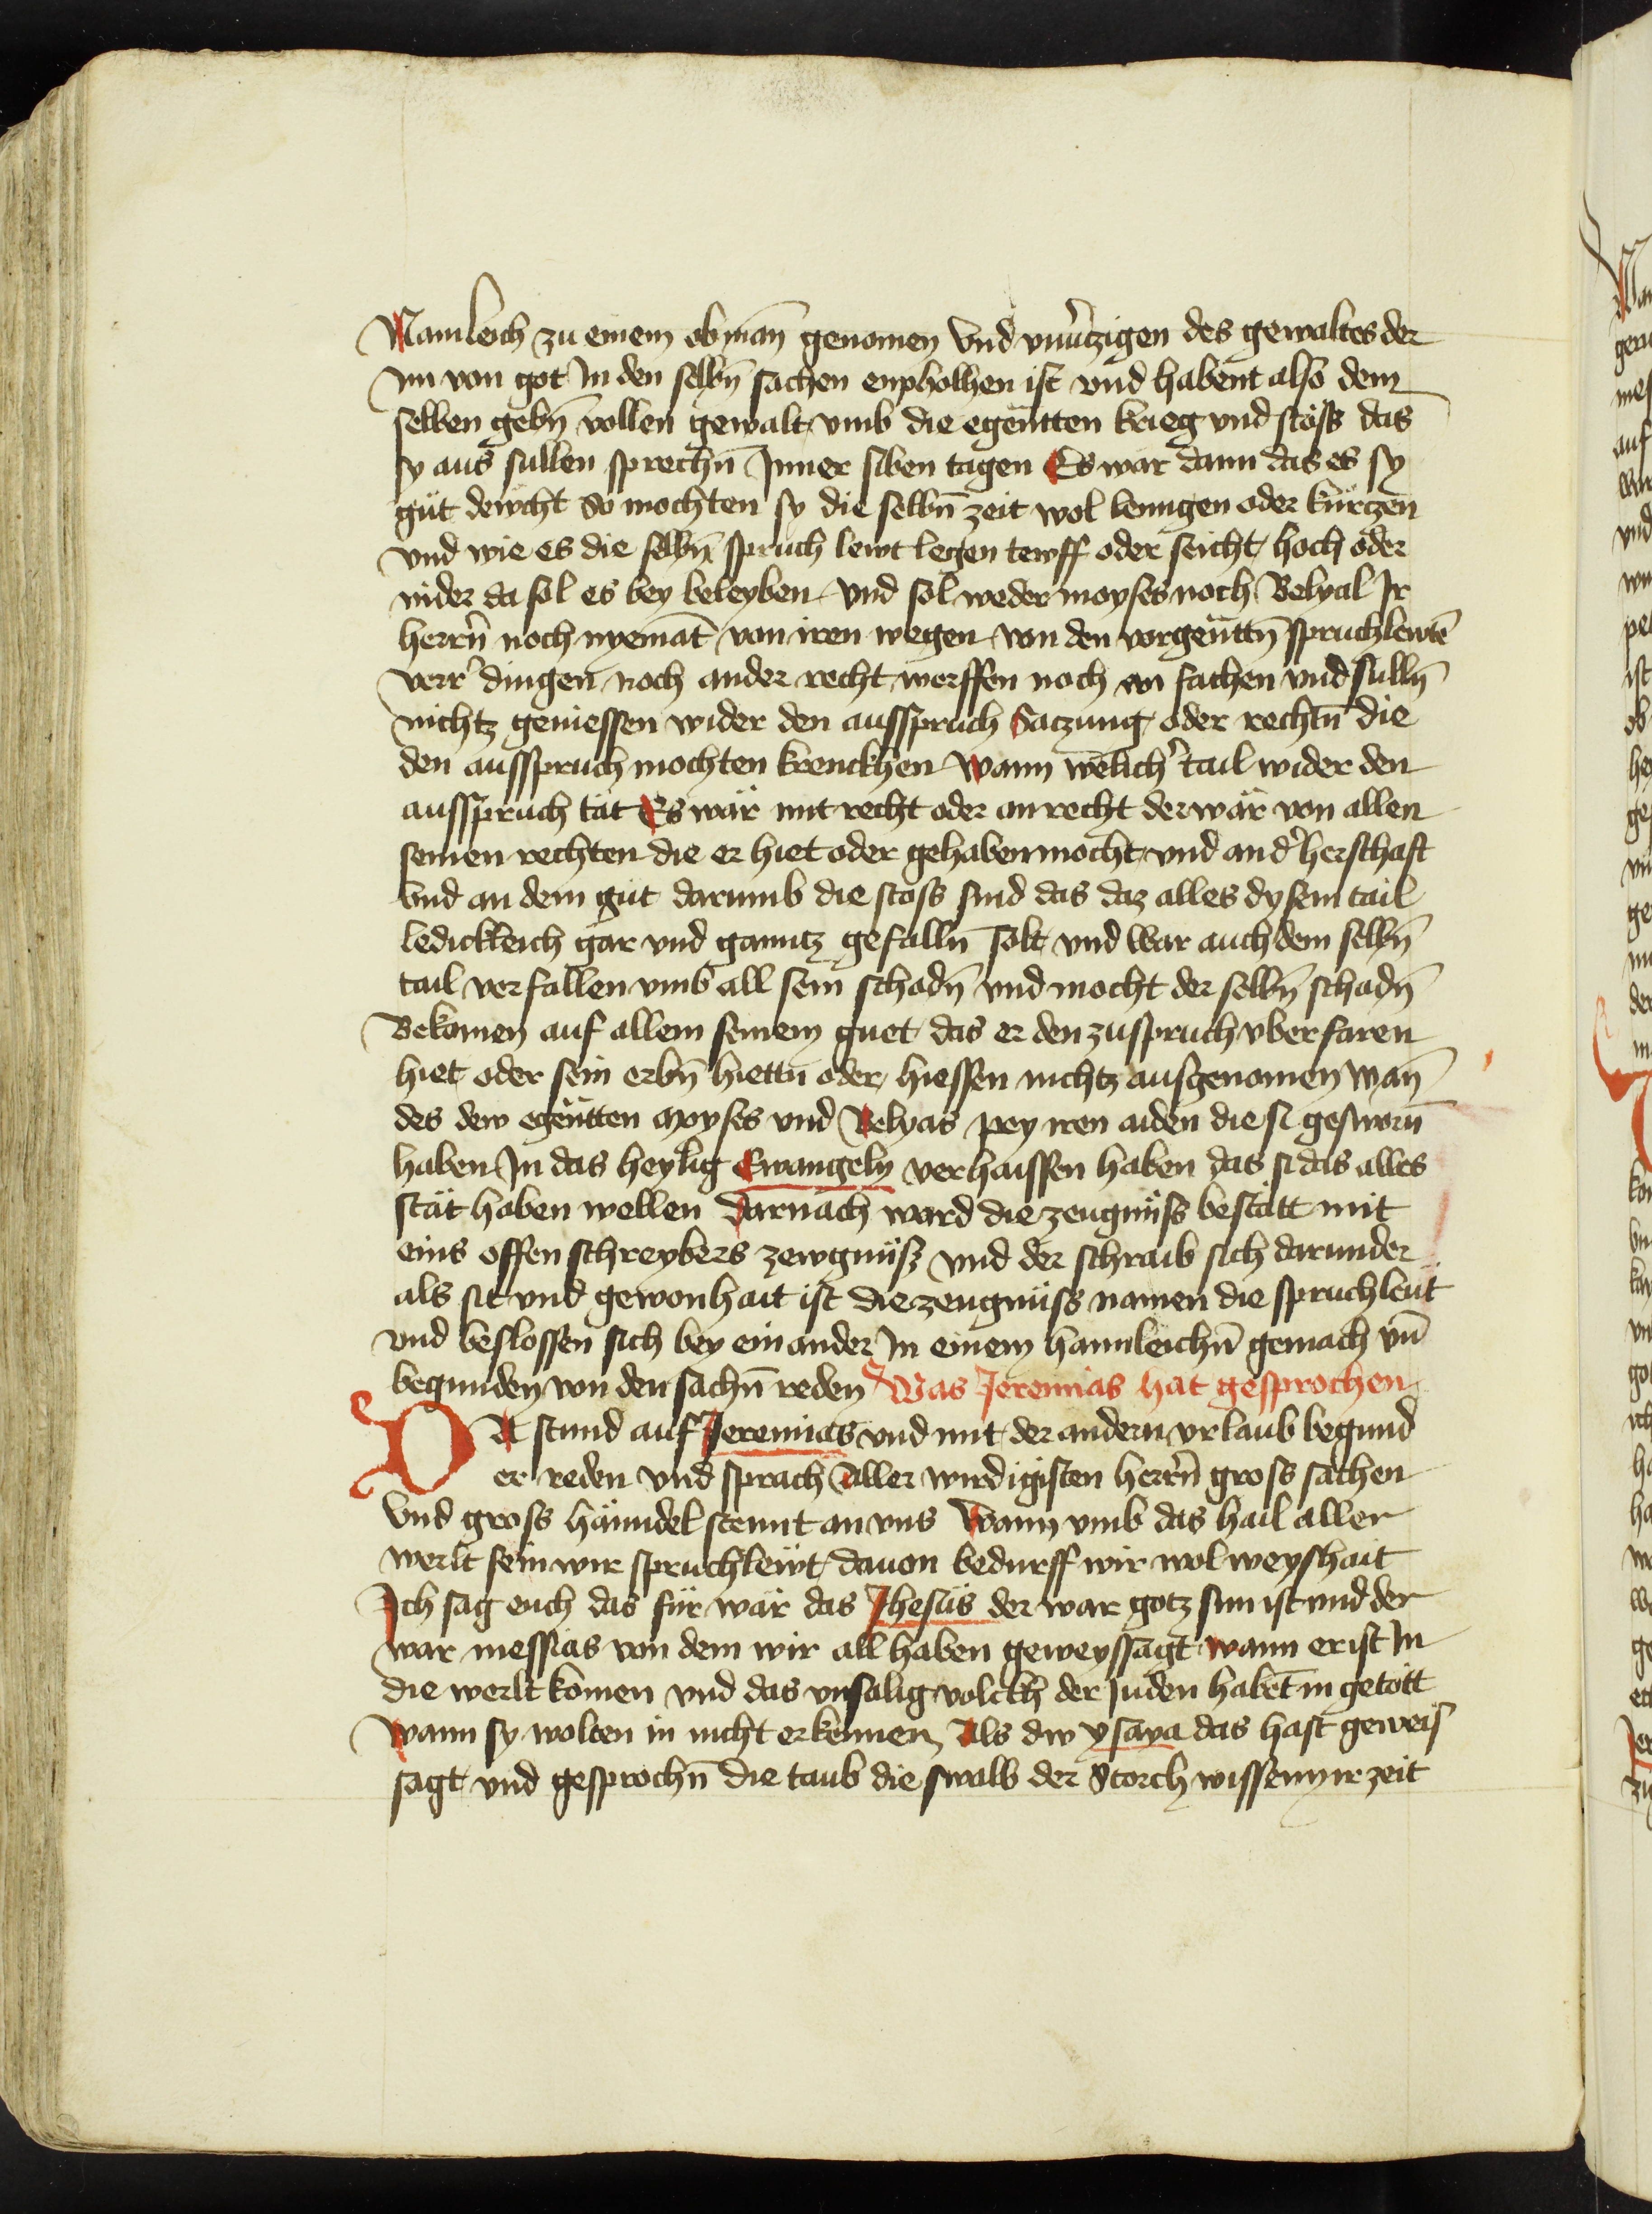 Namleich zu einem obman̄ genomen Vnd vnuͤtzigen des gewaltes der
im von got In den selbn̄ sachen enpholhen ist vnd habent also dem
selben gebn̄ vollen gewalt vmb die egen̄tten krieg vnd stoͤss das
sy aus sullen sprechn̄ Inner siben tagen Es waͤr dann das es sy
guͤt dewcht So mochten sy die selbn̄ zeit wol lenngen oder kuͤrczen
vnd wie es die selbn̄ spruch lewt legen tewff oder seicht hoch oder
nider da sol es bey beleyben vnd sol weder moyses noch Belyal Ir
herrn̄ noch nyemāt von iren wegen von den vorgen̄ttn̄ spruchlewtē
verr dingen noch ander recht werffen noch an fachen vnd sulln̄
nichtz geniessen wider den ausspruch Saczung oder rechtn̄ die
den ausspruch mochten krenckhen Wann welich̾ tail wider den
ausspruch taͤt Es waͤr mit recht oder an recht der waͤr von allen
seinen rechten die er hiet oder gehaben mocht vnd an d̾ herschaft
vnd an dem guͤt darumb die stoͤss sind das daz alles dysem tail
ledickleich gar vnd ganntz gefalln̄ solt vnd war auch dem selbn̄
tail verfallen vmb all sein schadn̄ vnd mocht der selbn̄ schadn̄
Bekomen auf allem seinem guet das er den zuspruch vberfaren
hiet oder sein erbn̄ hiettn̄ oder hiessen nichtz ausgenomen wan̄
des dew egen̄tten Moyses vnd Belyas pey iren aiden die si gesworn̄
haben In das heylig Ewangely verhaissen haben das si das alles
staͤt haben wellen Darnach ward die zeugnuͤss bestaͤtt mit
eins offen schreybers zewgnuͤsz vnd der schraib sich darunder
als sit vnd gewonhait ist die zeugnuͤss namen die spruchleuͤt
vnd beslossen sich bey einander In einem haimleichn̄ gemach vn̄
begunden von den sachn̄ reden Was Jeremias hat gesprochen
DA stund auf Jeremias vnd mit der andern vrlaub begund
er reden vnd sprach Aller wirdigisten herrn̄ gross sachen
Vnd gross haͤnndel stennt an vns Wann vmb das hail aller
werlt sein wir spruchlewt dauon bedurff wir wol weyshait
Ich sag euch das fuͤr waͤr das Jhesuͤs der war gotz sun ist vnd der
war messias von dem wir all haben geweyssagt wann er ist In
die werlt komen vnd das vnsalig volckh der Juden habēt in getoͤtt
Wann sy wolten in nicht erkennen Als dw ysaya das hast geweis
sagt vnd gesprochn̄ die taub die swalb der Storch wissenn ir zeit